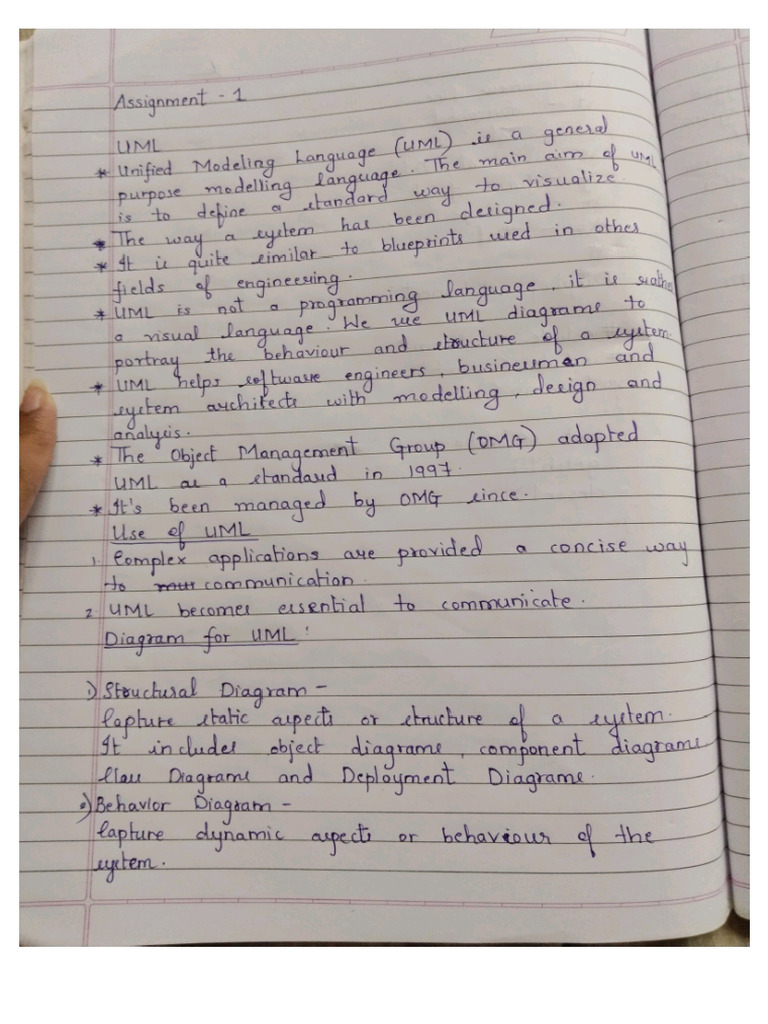 Assignment - 1
UML
* Unified Modeling Language (UML) is a general
purpose modelling language. The main aim of UML
is to define a standard way to visualize
* The way a system has been designed.
* It is quite similar to blueprints used in other
fields of engineering.
* UML is not a programming language, it is rather
a visual language. We use UML diagrams to
portray the behaviour and structure of a system
* UML helps software engineers, businessman and
system architects with modelling, design and
analysis.
* The Object Management Group (OMG) adopted
UML as a standard in 1997.
* It's been managed by OMG since.
Use of UML
1. Complex applications are provided a concise way
to communication.
2 UML becomes essential to communicate.
Diagram for UML:
1) Structural Diagram -
Capture static aspects or structure of a system.
It includes object diagrams, component diagrams
Class Diagrams and Deployment Diagrams.
2) Behavior Diagram -
Capture dynamic aspects or behaviour of the
system.